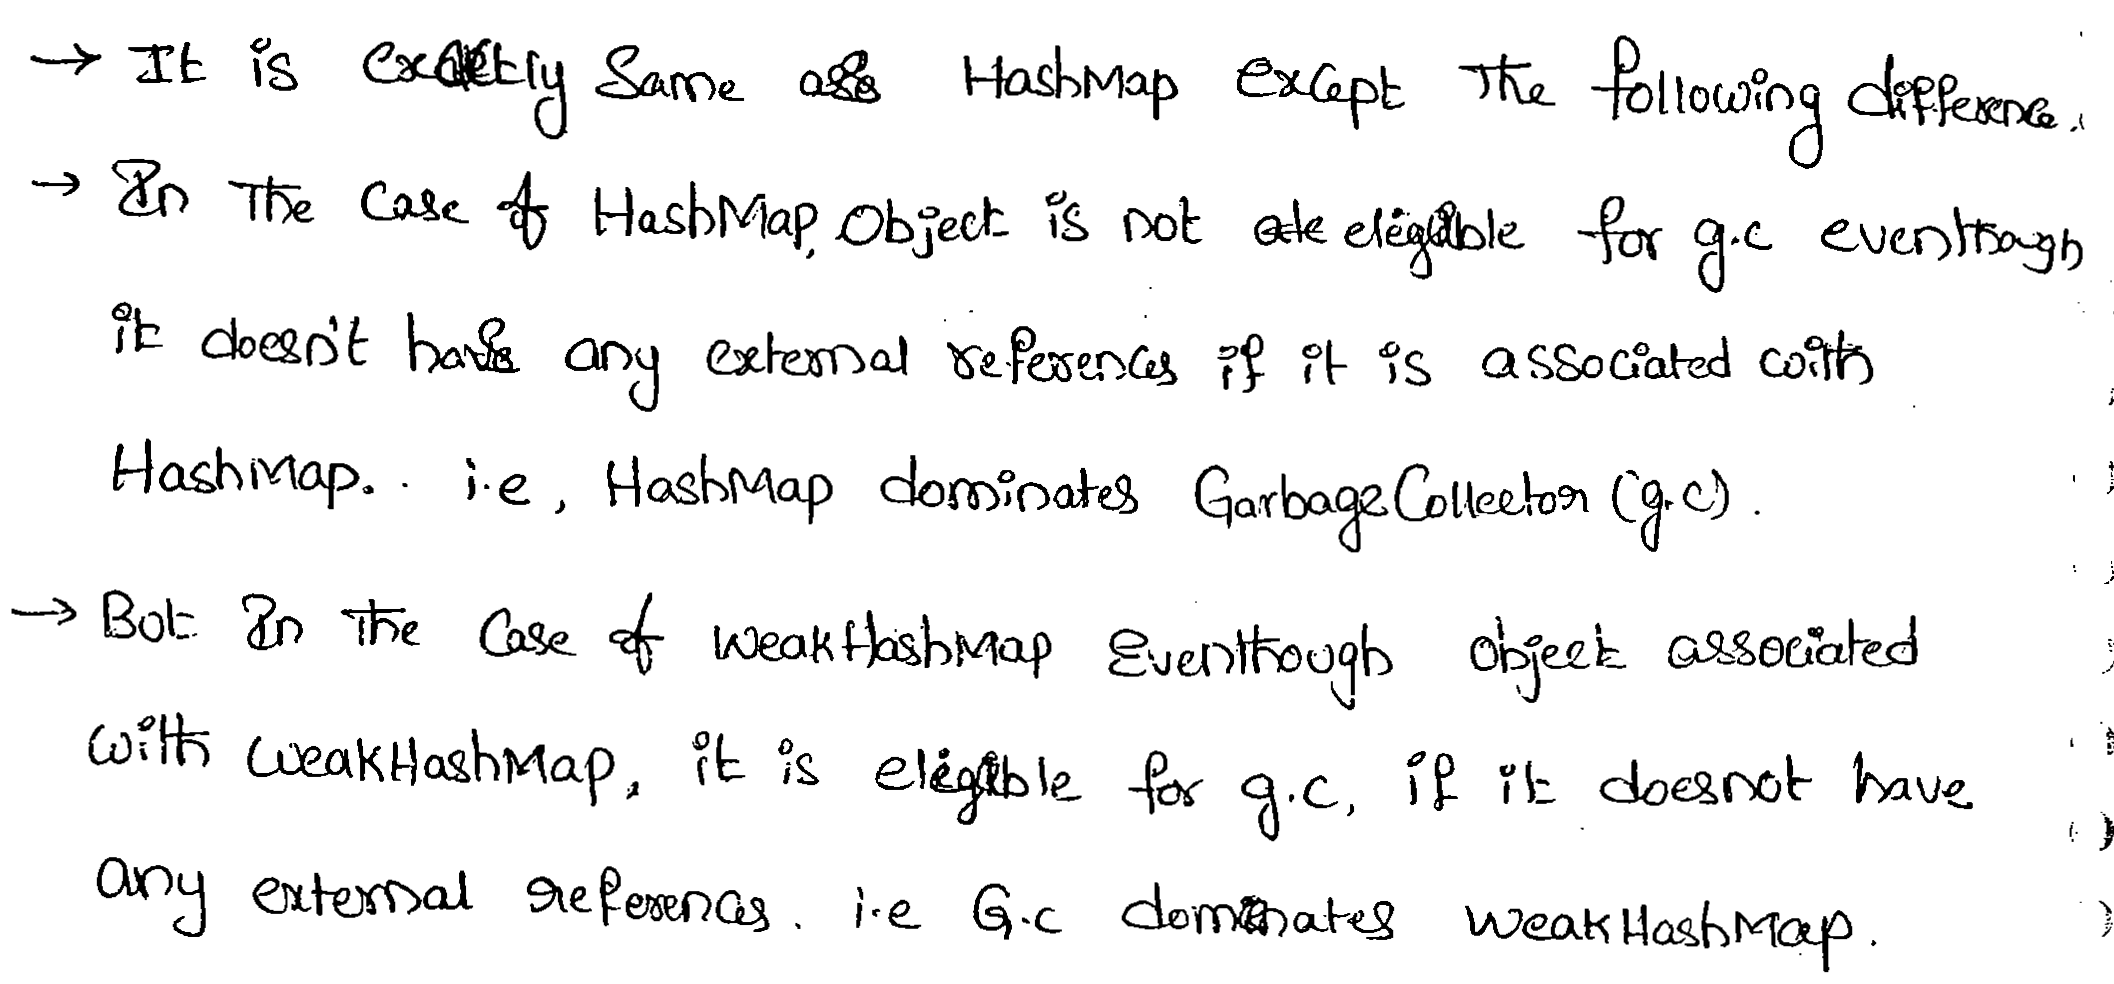 → It is exactly Same as HashMap except The following difference.
→ In The Case of HashMap, Object is not eligible for g.c eventhough
it doesn't have any external references if it is associated with
HashMap. i.e, HashMap dominates Garbage Collector (g.c).
→ But In The Case of WeakHashMap Eventhough object associated
with WeakHashMap, it is eligible for g.c, if it doesnot have
any external references. i.e G.c dominates WeakHashMap.